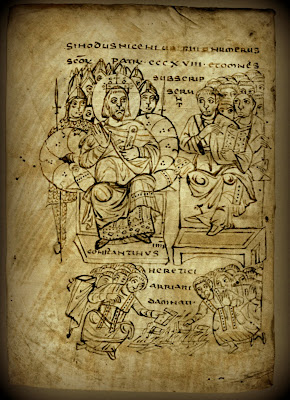 SINODUS NUMERUS
SCOR PATR CCCXVIII ET OMNES
SUBSCRIP
SERUNT
CONSTANTINUS
HERETICI
ARRIANI
DAMNATI